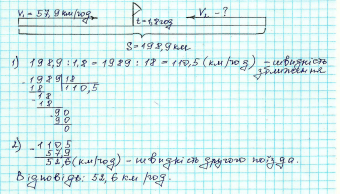 V₁ = 57,9 км/год
V₂ - ?
t = 1,8 год
S = 198,9 км
1) 198,9 : 1,8 = 1989 : 18 = 110,5 (км/год) – швидкість
зближення
1989 | 18
18 | 110,5
18
18
90
90
0
2) 110,5
57,9
52,6 (км/год) – швидкість другого поїзда.
Відповідь: 52,6 км/год.